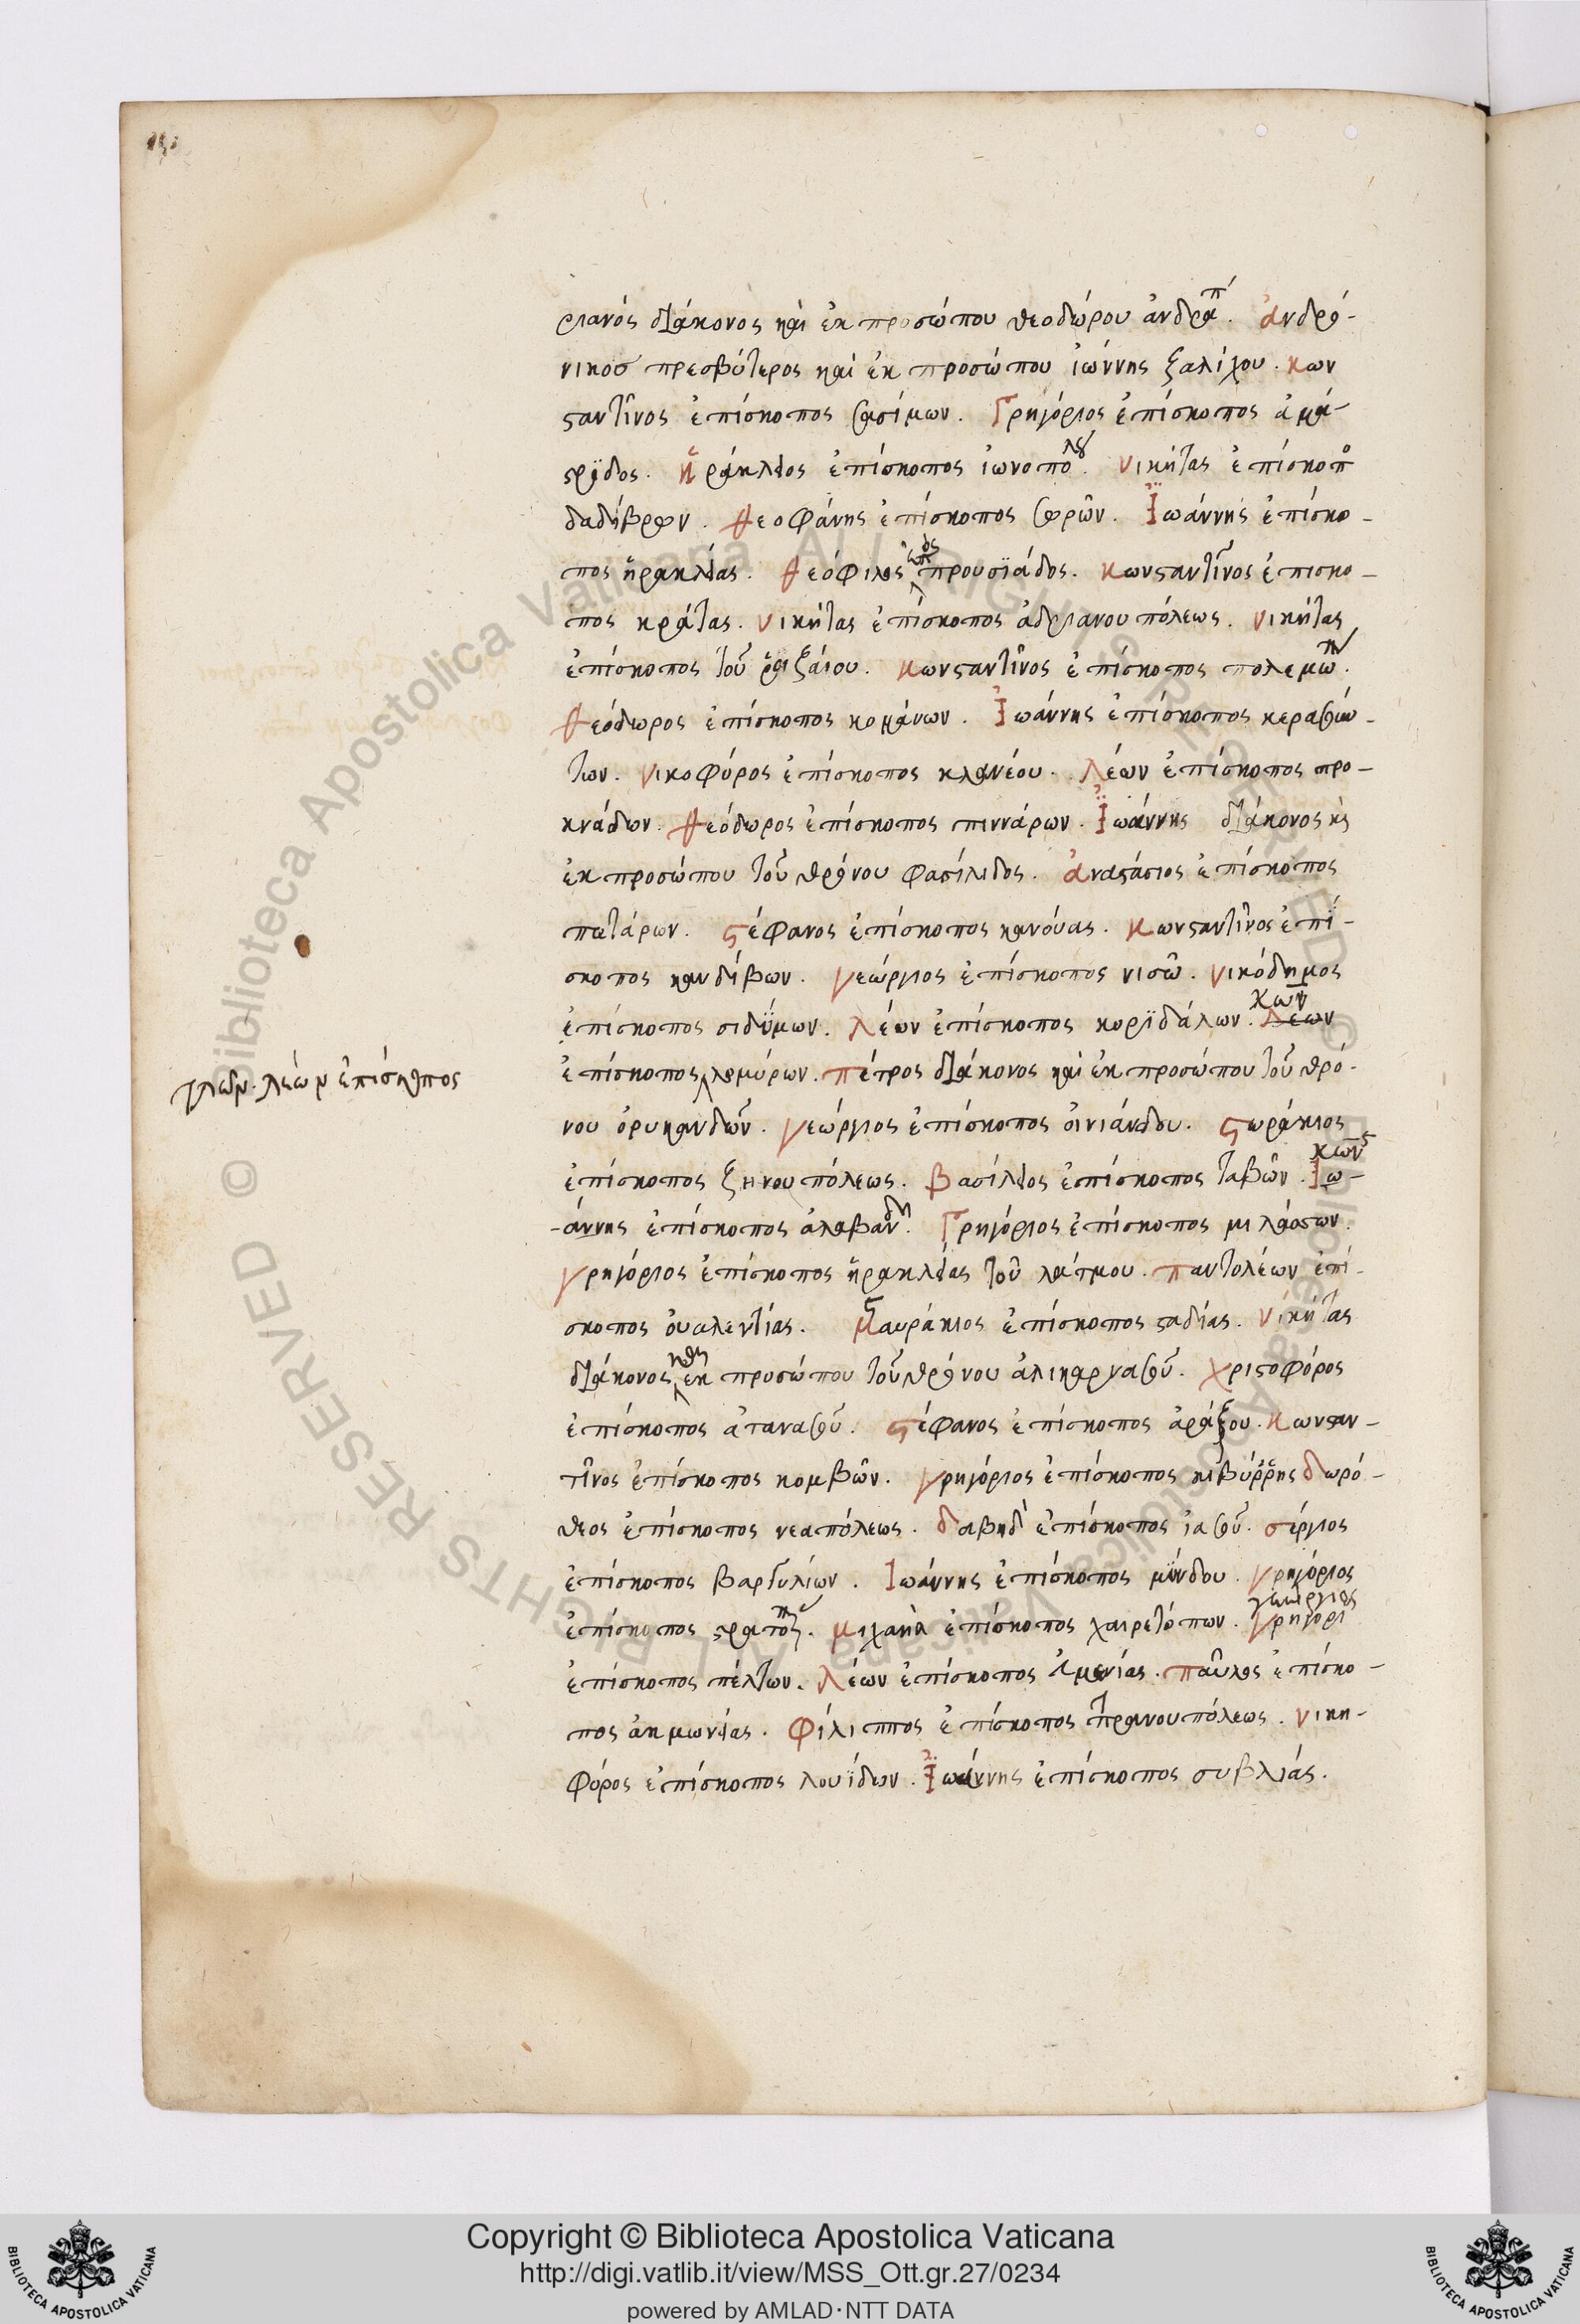 ριανός διάκονος καὶ ἐκ προσώπου θεοδώρου ἀνδραπ. ἀνδρό-
νικος πρεσβύτερος καὶ ἐκ προσώπου ἰωάννης ξαλίχου. κων
ςαντῖνος ἐπίσκοπος σασίμων. Γρηγόριος ἐπίσκοπος ἀμά-
ςριδος. ἡράκλειος ἐπίσκοπος ἰωνοπόλου. νικήτας ἐπίσκοπο
δαδύβρων. θεοφάνης ἐπίσκοπος σωρῶν. Ἰωάννης ἐπίσκο-
πος ἡρακλείας. θεόφιλος ἐπίσκοπος προυσϊάδος. κωνςαντῖνος ἐπισκο-
πος κράτας. νικήτας ἐπίσκοπος ἀδριανουπόλεως. νικήτας
ἐπίσκοπος τοῦ ῥιζαίου. κωνςαντῖνος ἐπίσκοπος πολεμων.
θεόδωρος ἐπίσκοπος κομάνων. Ἰωάννης ἐπίσκοπος κερασού-
των. νικοφόρος ἐπίσκοπος κλανέου. Λέων ἐπίσκοπος προ-
κνάδων. θεόδωρος ἐπίσκοπος πιννάρων. Ἰωάννης διάκονος κς
ἐκ προσώπου τοῦ θρόνου φασίλιδος. ἀναςάσιος ἐπίσκοπος
πατάρων. ςέφανος ἐπίσκοπος κανούας. κωνςαντῖνος ἐπί-
σκοπος κανδύβων. γεώργιος ἐπίσκοπος νισῶ. νικόδημος
ἐπίσκοπος σιδύμων. λέων ἐπίσκοπος κορϊδάλων. κων Λέων
ἐπίσκοπος λεμύρων. πέτρος διάκονος καὶ ἐκ προσώπου τοῦ θρό-
γλεων. λέων ἐπίσκοπος
νου ὀρυκανδῶν. γεώργιος ἐπίσκοπος οἰνιάνδου. ςωράκιος
ἐπίσκοπος ξηνουπόλεως. βασίλειος ἐπίσκοπος ταβῶν. κωνς Ἰω-
-άννης ἐπίσκοπος ἀλαβανδη. Γρηγόριος ἐπίσκοπος μιλάσσων.
γρηγόριος ἐπίσκοπος ἡρακλείας τοῦ λάτμου. παντολέων ἐπί-
σκοπος οὐαλεντίας. ςαυράκιος ἐπίσκοπος ςαδίας. νικήτας
διάκονος καὶ ἐκ προσώπου τοῦ θρόνου ἀλικαρνασοῦ. χριςοφόρος
ἐπίσκοπος ἀτανασοῦ. ςέφανος ἐπίσκοπος ἀράξου. κωνςαν-
τῖνος ἐπίσκοπος κομβῶν. γρηγόριος ἐπίσκοπος κιβύρρης δωρό-
θεος ἐπίσκοπος νεαπόλεως. δαβηδὶ ἐπίσκοπος ἰασοῦ. σέργιος
ἐπίσκοπος βαργυλίων. Ἰωάννης ἐπίσκοπος μύνδου. γρηγόριος
ἐπίσκοπος ςρατον. μιχαὴλ ἐπίσκοπος χαιρετόπων. γεώργιος γρηγόρι
ἐπίσκοπος πέλτων. Λέων ἐπίσκοπος ἐμενίας. παῦλος ἐπίσκο-
πος ἀκμωνείας. φίλιππος ἐπίσκοπος τρανουπόλεως. νικη-
φόρος ἐπίσκοπος λουΐδων. Ἰωάννης ἐπίσκοπος συβλιάς.
Copyright © Biblioteca Apostolica Vaticana
http://digi.vatlib.it/view/MSS_Ott.gr.27/0234
powered by AMLAD·NTT DATA
BIBLIOTECA APOSTOLICA VATICANA
BIBLIOTECA APOSTOLICA VATICANA